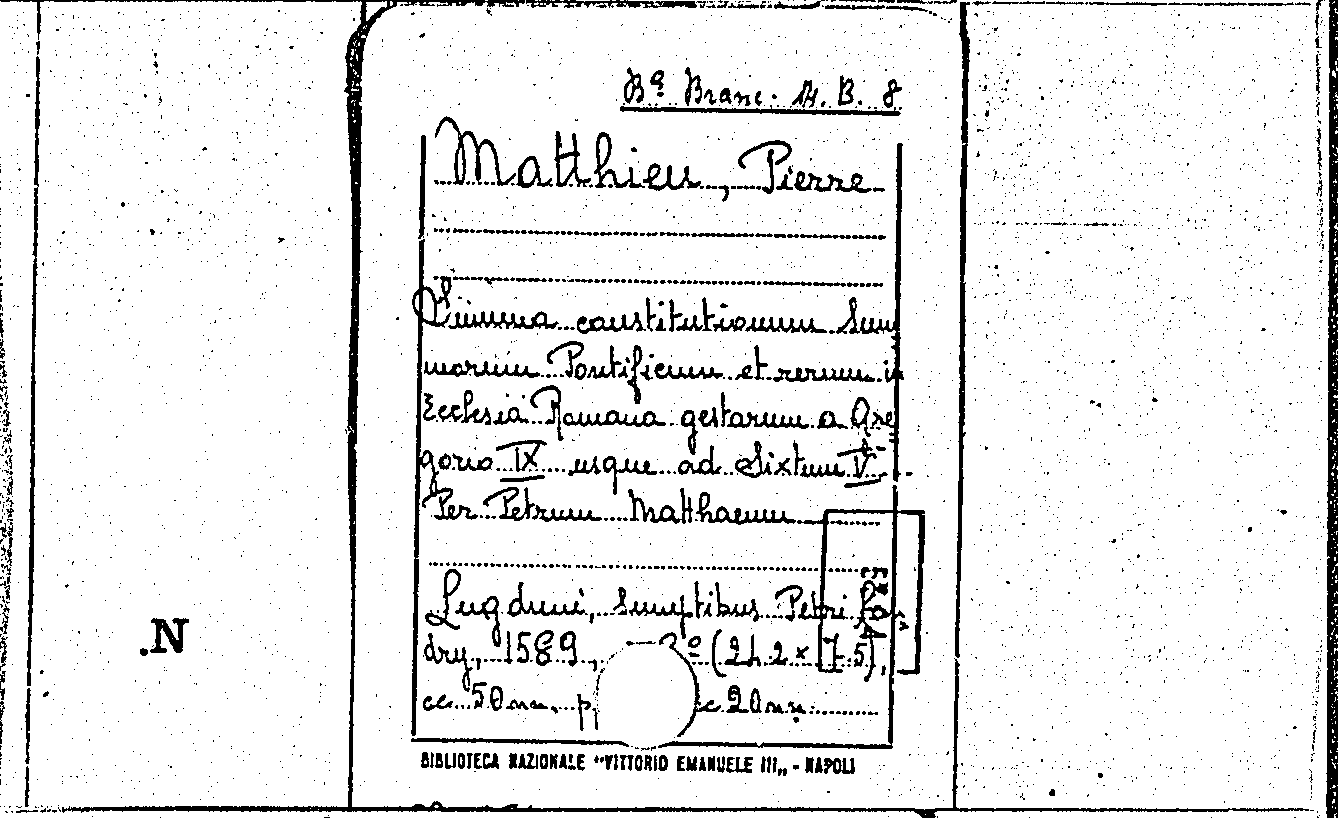 Bª Branc. 14. B. 8
Matthieu, Pierre
Summa constitutionum Sum
morum Pontificum et rerum in
Ecclesia Romana gestarum a Gre
gorio IX usque ad Sixtum V.
Per Petrum Matthaeum
Lugduni, Sumptibus Petri
dry, 1589,
cc. 50 nn., p c 20 nn.
BIBLIOTECA NAZIONALE "VITTORIO EMANUELE III„ - NAPOLI
.N